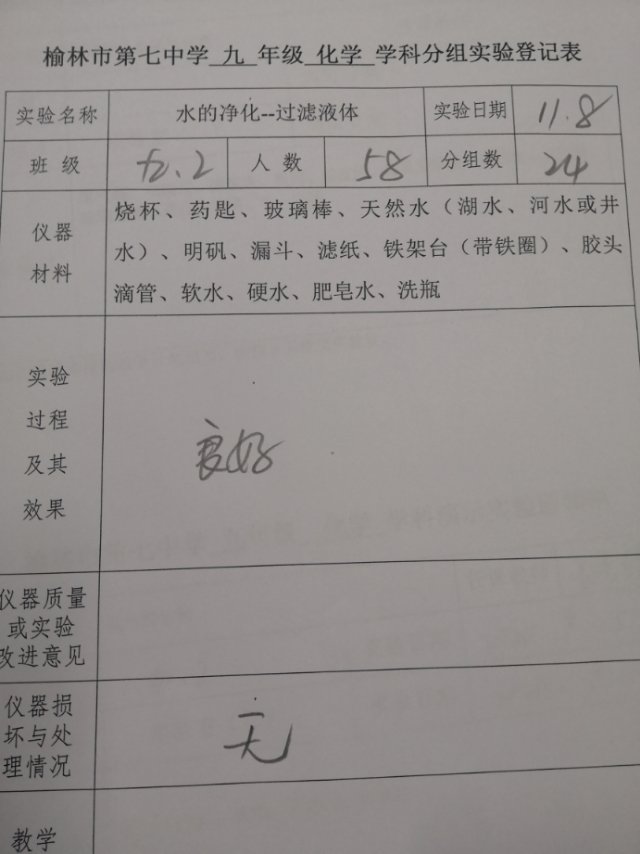 榆林市第七中学 九 年级 化学 学科分组实验登记表
实验名称 水的净化--过滤液体 实验日期 11.8
班 级 九.2 人 数 58 分组数 24
仪器
材料
烧杯、药匙、玻璃棒、天然水（湖水、河水或井
水）、明矾、漏斗、滤纸、铁架台（带铁圈）、胶头
滴管、软水、硬水、肥皂水、洗瓶
实验
过程
及其
效果
良好
仪器质量
或实验
改进意见
仪器损
坏与处
理情况
无
教学